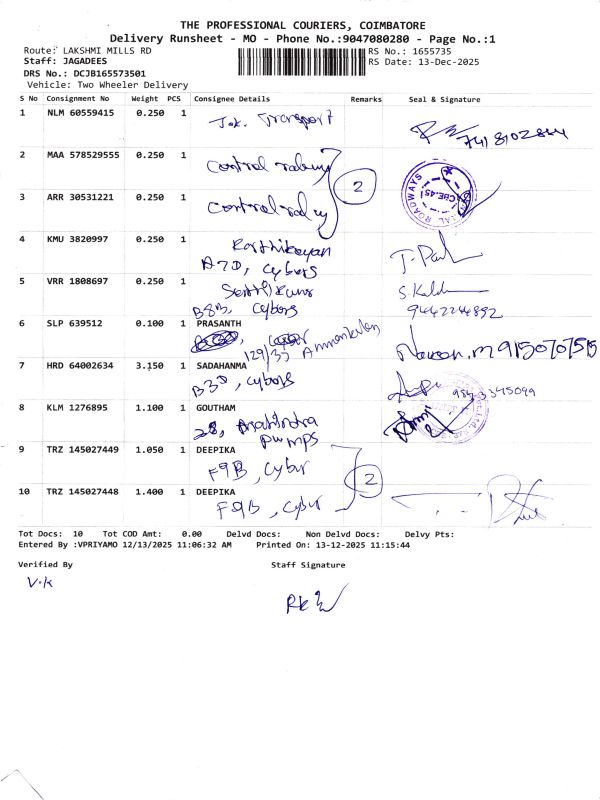 THE PROFESSIONAL COURIERS, COIMBATORE
Delivery Runsheet - MO - Phone No.:9047080280 - Page No.:1
Route: LAKSHMI MILLS RD RS No.: 1655735
Staff: JAGADEES RS Date: 13-Dec-2025
DRS No.: DCJB165573501
Vehicle: Two Wheeler Delivery
S No Consignment No Weight PCS Consignee Details Remarks Seal & Signature
1 NLM 60559415 0.250 1 Transport
2 MAA 578529555 0.250 1 Control 2
3 ARR 30531221 0.250 1 Control
ROADWAYS
4 KMU 3820997 0.250 1 Karthikeyan
A7D, Cybers
5 VRR 1808697 0.250 1
B8B, Cybers 9442244892
6 SLP 639512 0.100 1 PRASANTH
129/33 Naveen.M 9150707515
7 HRD 64002634 3.150 1 SADAHANMA
B3D, Cybers
8 KLM 1276895 1.100 1 GOUTHAM
28, Mahindra
Pumps
9 TRZ 145027449 1.050 1 DEEPIKA
F9B, Cyber
10 TRZ 145027448 1.400 1 DEEPIKA 2
F9B, Cyber
Tot Docs: 10 Tot COD Amt: 0.00 Delvd Docs: Non Delvd Docs: Delvy Pts:
Entered By :VPRIYAMO 12/13/2025 11:06:32 AM Printed On: 13-12-2025 11:15:44
Verified By Staff Signature
V.K